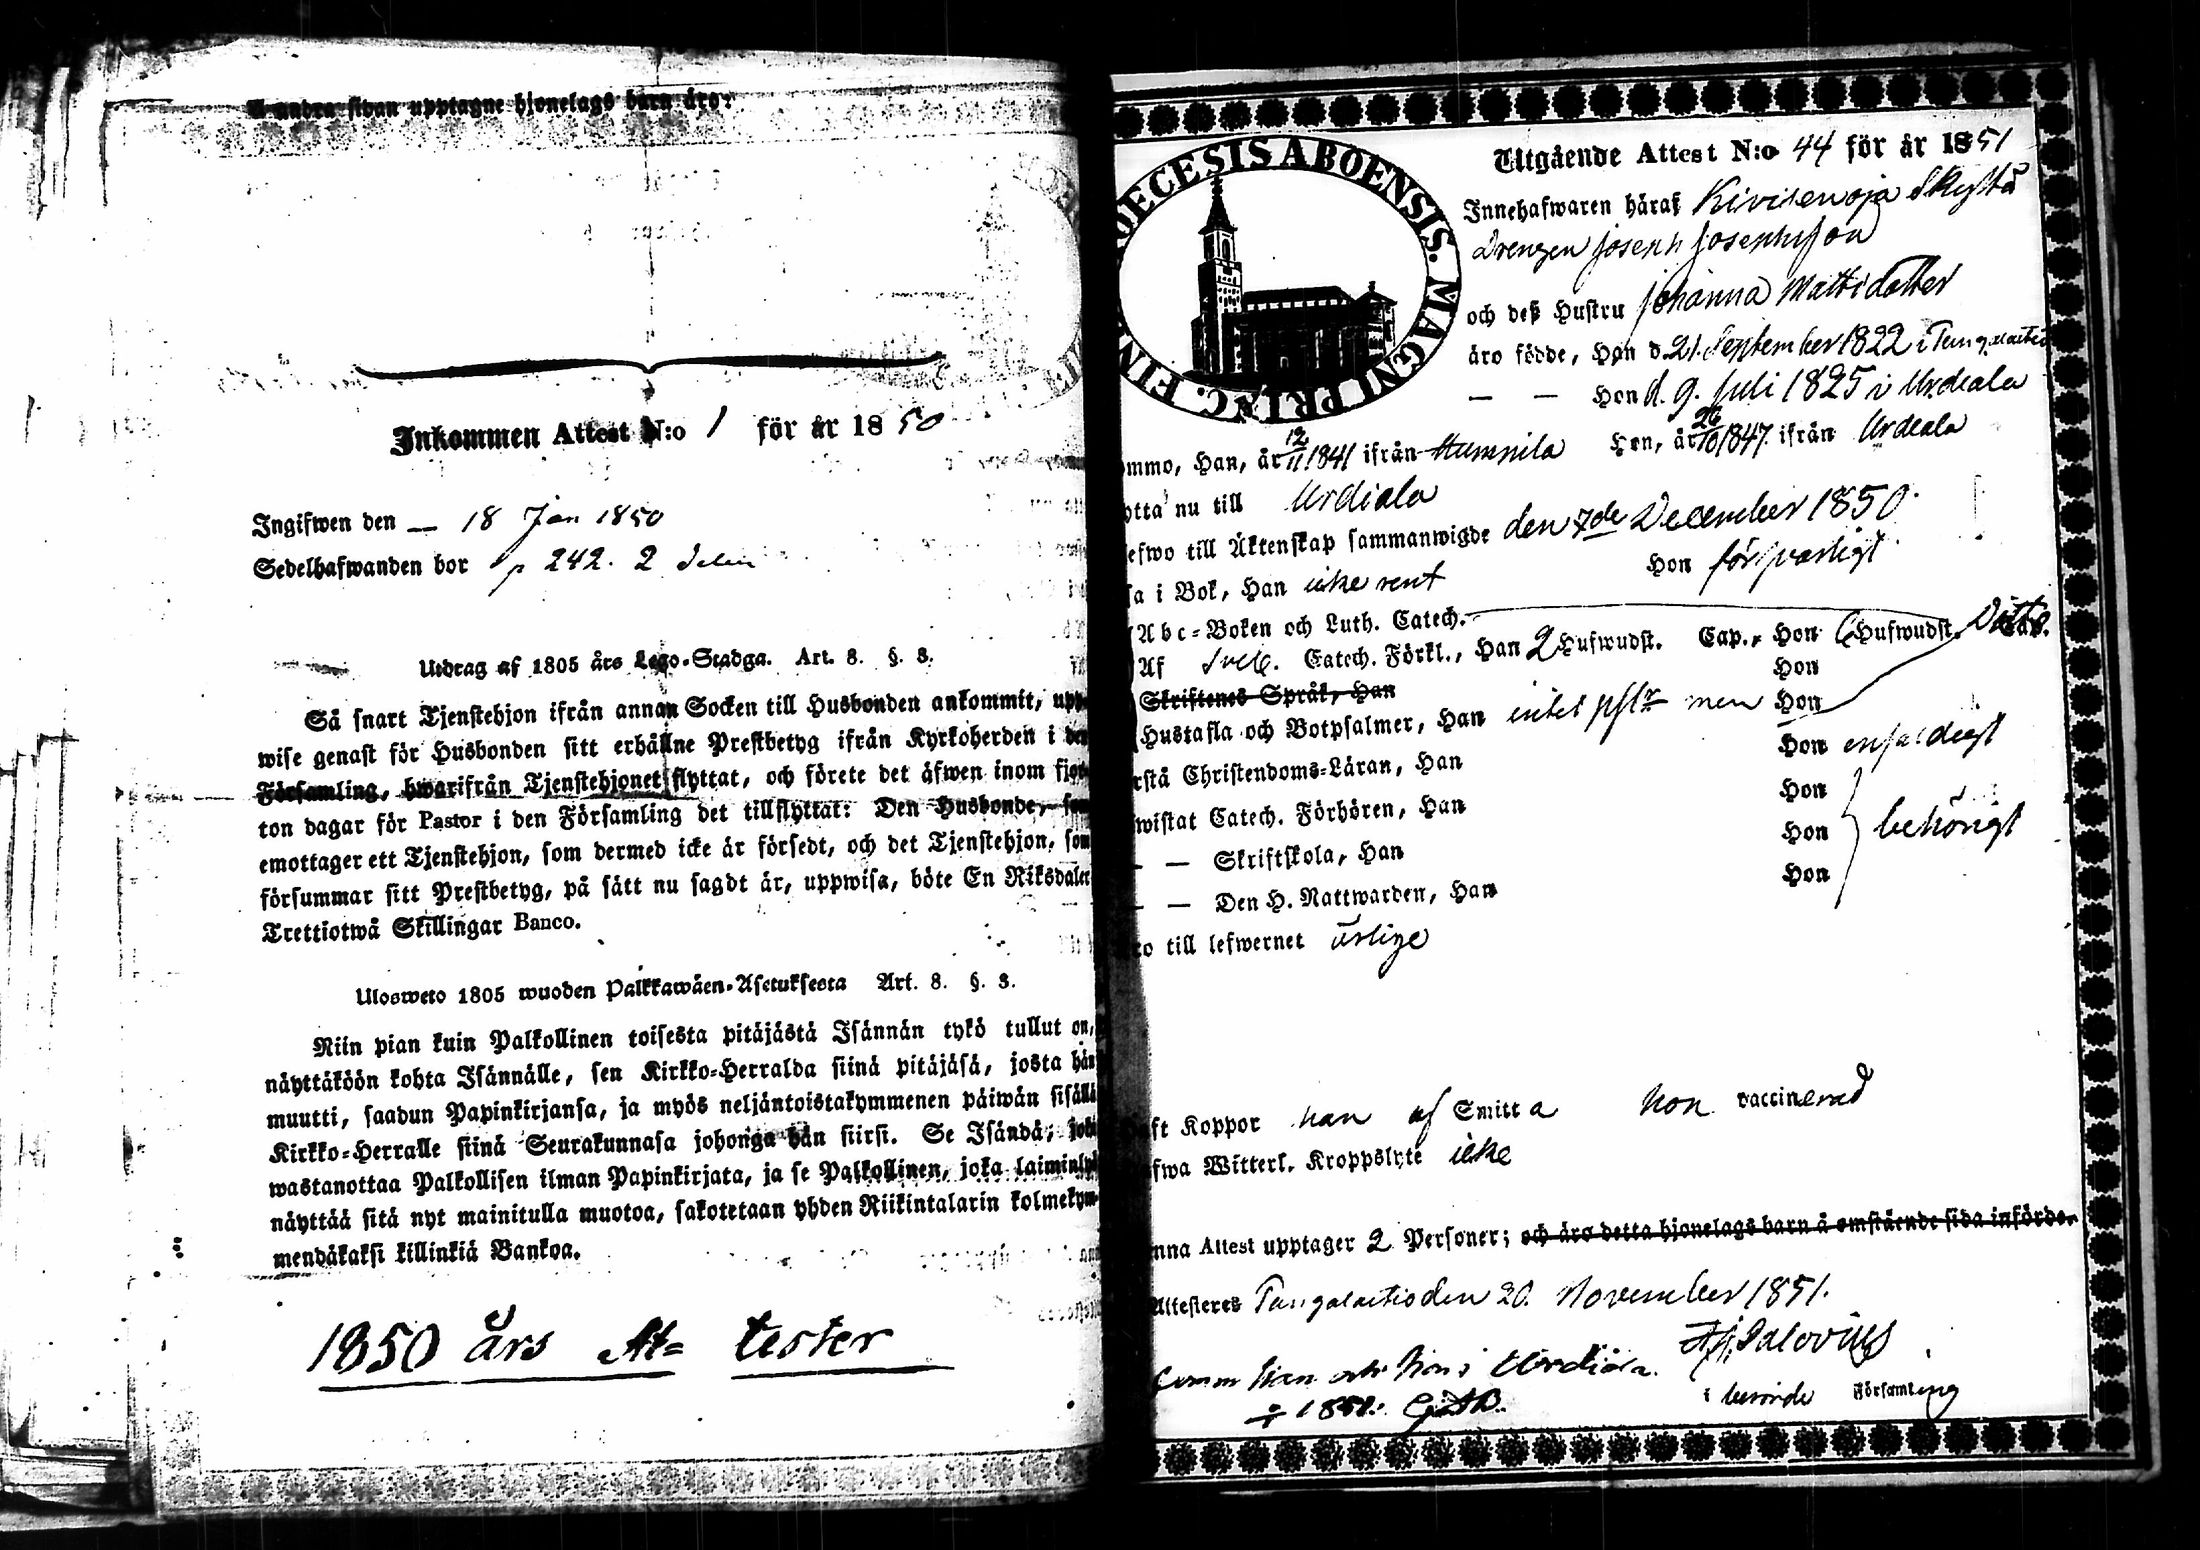 A andra sidan upptagne hjonelags barn äro:
Inkommen Attest N:o 1 för år 1850
Ingifwen den — 18 Jan 1850
Sedelhafwanden bor p 242. 2 delen
Utdrag af 1805 års Lego-Stadga. Art. 8. §. 3.
Så snart Tjenstehjon ifrån annan Socken till Husbonden ankommit, upp-
wise genast för Husbonden sitt erhållne Prestbetyg ifrån Kyrkoherden i den
Församling, hwarifrån Tjenstehjonet flyttat, och förete det äfwen inom fjor-
ton dagar för Pastor i den Församling det tillflyttat: Den Husbonde, som
emottager ett Tjenstehjon, som dermed icke är försedt, och det Tjenstehjon, som
försummar sitt Prestbetyg, på sätt nu sagdt är, uppwisa, böte En Riksdaler
Trettiotwå Skillingar Banco.
Ulosweto 1805 wuoden Palkkawäen-Asetuksesta Art. 8. §. 3.
Niin pian kuin Palkollinen toisesta pitäjästä Isännän tykö tullut on,
näyttäköön kohta Isännälle, sen Kirkko-Herralda siinä pitäjäsä, josta hän
muutti, saadun Papinkirjansa, ja myös neljäntoistakymmenen päiwän sisällä
Kirkko-Herralle siinä Seurakunnasa johonga hän siirsi. Se Isändä, joka
wastanottaa Palkollisen ilman Papinkirjata, ja se Palkollinen, joka laiminlyö
näyttää sitä nyt mainitulla muotoa, sakotetaan yhden Riikintalarin kolmekym-
mendäkaksi killinkiä Bankoa.
1850 års At= tester
DECESIS ABOENSIS. MAGNI PRINC. FIN
Utgående Attest N:o 44 för år 1851
Innehafwaren häraf Kivisenoja Skyttä
Drengen Joseph Josephsson
och deß Hustru Johanna Mattsdotter
äro födde, Han d. 21. September 1822 i Tungelactio
— — Hon d. 9. Juli 1825 i Urdiala
ommo, Han, år 12/11 1841 ifrån Humpila Hon, år 26/10 1847. ifrån Urdiala
ytta nu till Urdiala
lefwo till Äktenskap sammanwigde den 7de December 1850.
sa i Bok, Han icke rent Hon försvarligt
Abc-Boken och Luth. Catech.
Af Sveb. Catech. Förkl., Han 2 Hufwudst. Cap., Hon 6 Hufwudst. Ditto Cap.
Skriftenes Språk, Han Hon
Hustafla och Botpsalmer, Han intet men Hon
rstå Christendoms-Läran, Han Hon enfaldigt
wistat Catech. Förhören, Han Hon
— — Skriftskola, Han Hon behörigt
— — Den H. Nattwarden, Han Hon
ro till lefwernet ärlige
aft Koppor han af Smitta Hon vaccinerad
afwa Witterl. Kroppslyte icke
nna Attest upptager 2 Personer; och äro detta hjonelags barn å omstående sida införde.
Attesteres Tungelactio den 20. November 1851.
Salovius
Comm Han och Hon i Urdiala. i berörde Församling
1851.